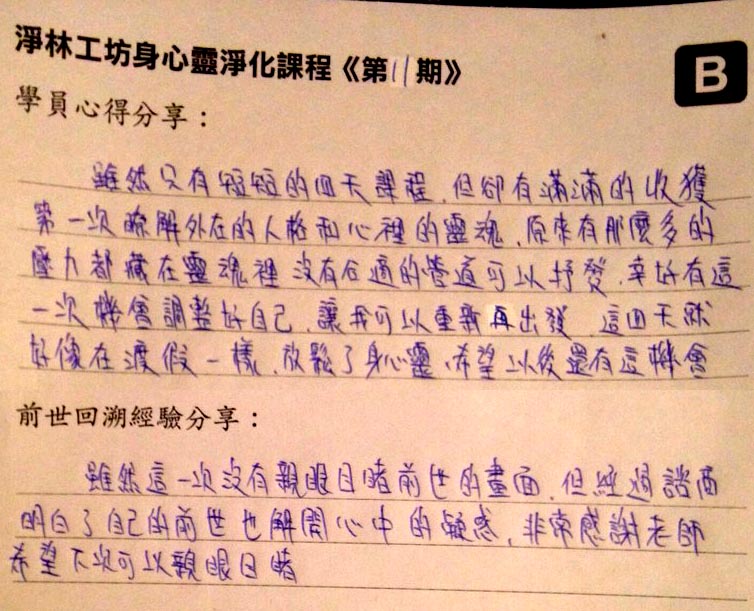 淨林工坊身心靈淨化課程《第11期》
B
學員心得分享：
雖然只有短短的四天課程，但卻有滿滿的收獲
第一次瞭解外在的人格和心裡的靈魂，原來有那麼多的
壓力都藏在靈魂裡 沒有合適的管道可以抒發，幸好有這
一次機會調整好自己，讓我可以重新再出發，這四天就
好像在渡假一樣，放鬆了身心靈，希望以後還有這機會
前世回溯經驗分享：
雖然這一次沒有親眼目睹前世的畫面，但經過諮商
明白了自己的前世也解開心中的疑惑，非常感謝老師
希望下次可以親眼目睹